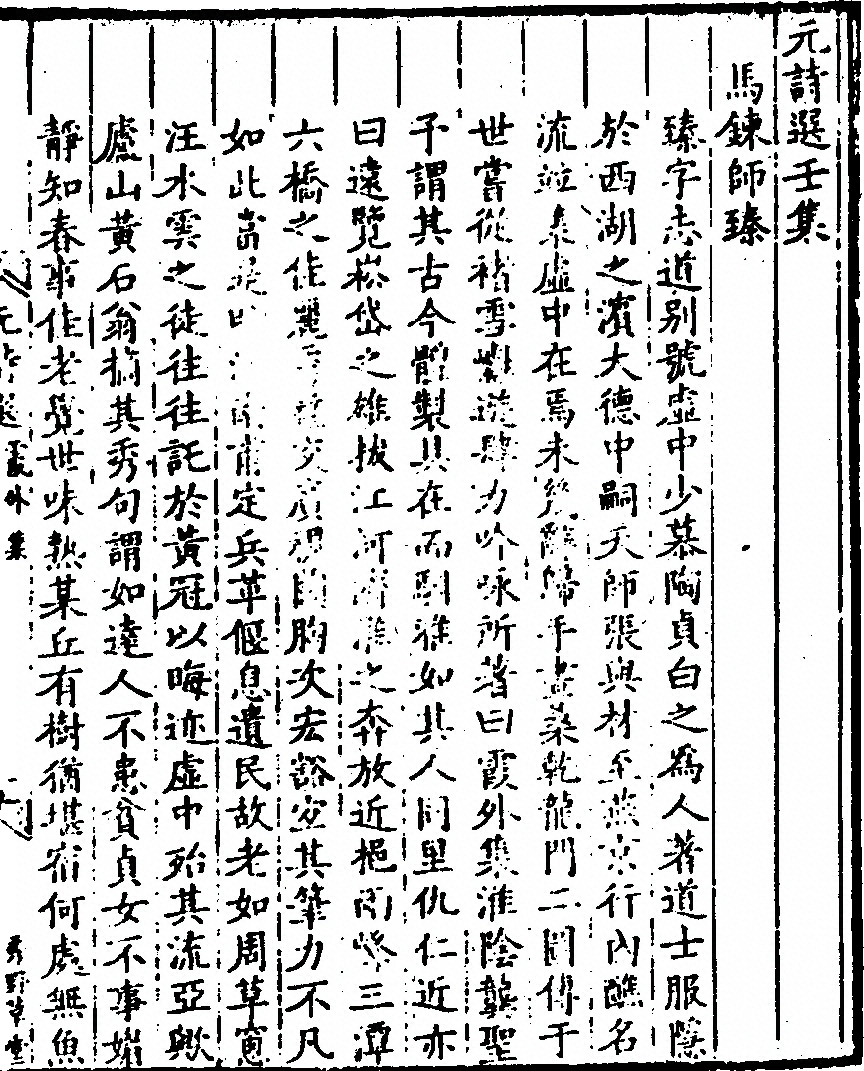 元詩選壬集
馬鍊師臻
臻字志道别號虛中少慕陶貞白之爲人著道士服隱
於西湖之濱大德中嗣天師張與材至燕京行內醮名
流並集虛中在焉未幾辭歸手畫桑乾龍門二圖傳于
世嘗從褚雪巘遊肆力吟咏所著曰霞外集淮陰龔聖
予謂其古今體製具在而馴雅如其人同里仇仁近亦
曰遠覽崧岱之雄拔江河濟淮之奔放近挹兩峰三潭
六橋之佳麗交廣胸次宏豁宜其筆力不凡
如此當是時江南甫定兵革偃息遺民故老如周草窗
汪水雲之徒往往託於黃冠以晦迹虛中殆其流亞歟
廬山黃石翁摘其秀句謂如達人不患貧貞女不事媚
靜知春事佳老覺世味熟某丘有樹猶堪宿何處無魚
元詩選 霞外集
秀野草堂